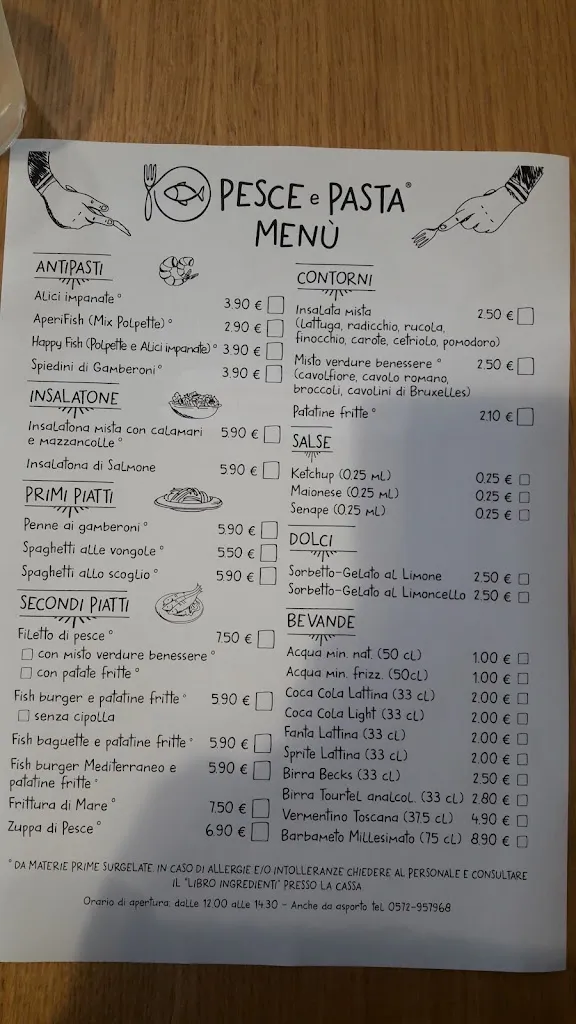 PESCE e PASTA®
MENÙ
ANTIPASTI
Alici impanate ° 3.90 €
AperiFish (Mix Polpette) ° 2.90 €
Happy Fish (Polpette e Alici impanate) ° 3.90 €
Spiedini di Gamberoni ° 3.90 €
INSALATONE
Insalatona mista con calamari
e mazzancolle ° 5.90 €
Insalatona di Salmone 5.90 €
PRIMI PIATTI
Penne ai gamberoni ° 5.90 €
Spaghetti alle vongole ° 5.50 €
Spaghetti allo scoglio ° 5.90 €
SECONDI PIATTI
Filetto di pesce ° 7.50 €
con misto verdure benessere °
con patate fritte °
Fish burger e patatine fritte ° 5.90 €
senza cipolla
Fish baguette e patatine fritte ° 5.90 €
Fish burger Mediterraneo e 5.90 €
patatine fritte °
Frittura di Mare ° 7.50 €
Zuppa di Pesce ° 6.90 €
CONTORNI
Insalata mista 2.50 €
(lattuga, radicchio, rucola,
finocchio, carote, cetriolo, pomodoro)
Misto verdure benessere ° 2.50 €
(cavolfiore, cavolo romano,
broccoli, cavolini di Bruxelles)
Patatine fritte ° 2.10 €
SALSE
Ketchup (0.25 ml) 0.25 €
Maionese (0.25 ml) 0.25 €
Senape (0.25 ml) 0.25 €
DOLCI
Sorbetto-Gelato al Limone 2.50 €
Sorbetto-Gelato al Limoncello 2.50 €
BEVANDE
Acqua min. nat. (50 cl) 1.00 €
Acqua min. frizz. (50cl) 1.00 €
Coca Cola Lattina (33 cl) 2.00 €
Coca Cola Light (33 cl) 2.00 €
Fanta Lattina (33 cl) 2.00 €
Sprite Lattina (33 cl) 2.00 €
Birra Becks (33 cl) 2.50 €
Birra Tourtel analcol. (33 cl) 2.80 €
Vermentino Toscana (37.5 cl) 4.90 €
Barbameto Millesimato (75 cl) 8.90 €
° DA MATERIE PRIME SURGELATE. IN CASO DI ALLERGIE E/O INTOLLERANZE CHIEDERE AL PERSONALE E CONSULTARE
IL "LIBRO INGREDIENTI" PRESSO LA CASSA
Orario di apertura: dalle 12.00 alle 14.30 - Anche da asporto tel. 0572-957968